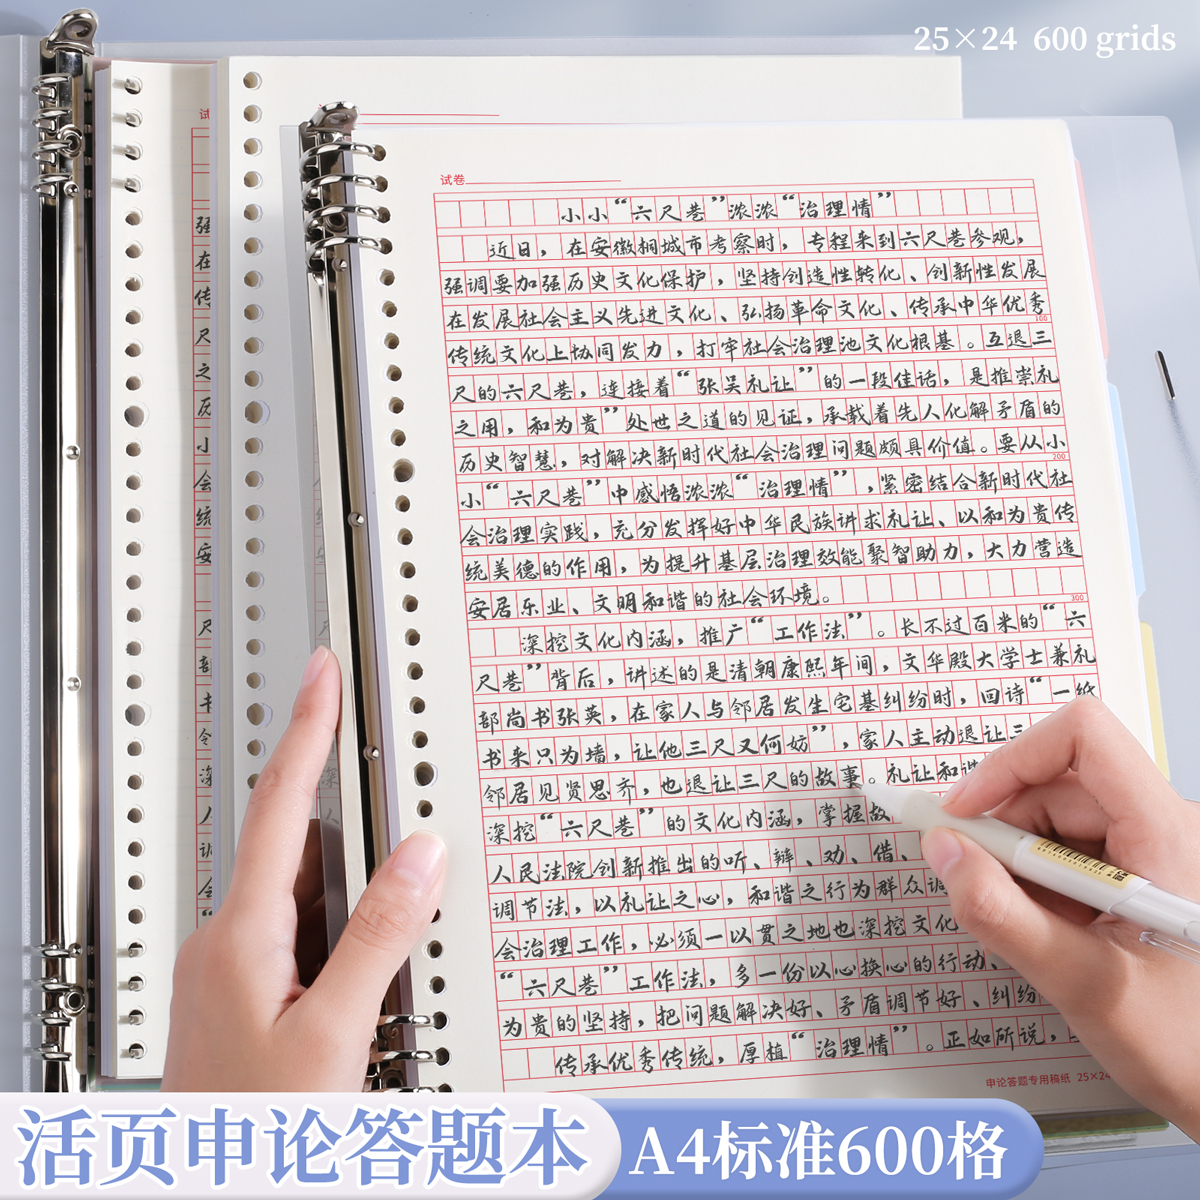 25×24 600 grids
试卷
小小“六尺巷”浓浓“治理情”
近日，在安徽桐城市考察时，专程来到六尺巷参观，
强调要加强历史文化保护，坚持创造性转化、创新性发展
在发展社会主义先进文化、弘扬革命文化、传承中华优秀
100
传统文化上协同发力，打牢社会治理池文化根基。互退三
尺的六尺巷，连接着“张吴礼让”的一段佳话，是推崇礼
之用，和为贵”处世之道的见证，承载着先人化解矛盾的
历史智慧，对解决新时代社会治理问题颇具价值。要从小
200
小“六尺巷”中感悟浓浓“治理情”，紧密结合新时代社
会治理实践，充分发挥好中华民族讲求礼让、以和为贵传
统美德的作用，为提升基层治理效能聚智助力，大力营造
安居乐业、文明和谐的社会环境。
300
深挖文化内涵，推广“工作法”。长不过百米的“六
尺巷”背后，讲述的是清朝康熙年间，文华殿大学士兼礼
部尚书张英，在家人与邻居发生宅基纠纷时，回诗“一纸
书来只为墙，让他三尺又何妨”，家人主动退让三
邻居见贤思齐，也退让三尺的故事。礼让和谐
深挖“六尺巷”的文化内涵，掌握故
人民法院创新推出的听、辩、劝、借、
调节法，以礼让之心，和谐之行为群众调
会治理工作，必须一以贯之地也深挖文化
“六尺巷”工作法，多一份以心换心的行动、
为贵的坚持，把问题解决好、矛盾调节好、纠纷
传承优秀传统，厚植“治理情”。正如所说，
申论答题专用稿纸 25×24
活页申论答题本
A4标准600格